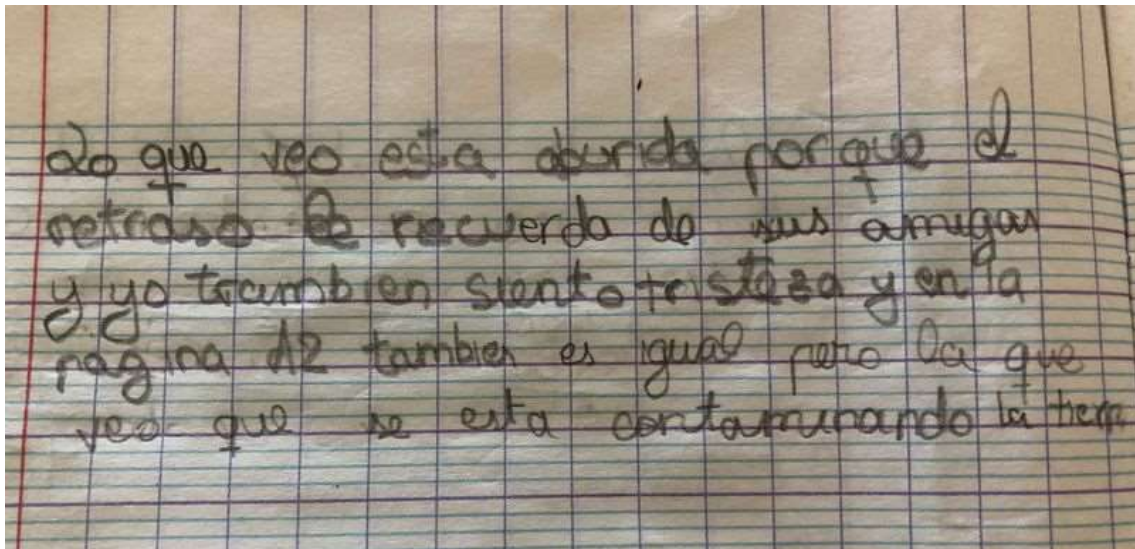 Lo que veo esta aburida porque el
retraso le recuerda de sus amigas
y yo trambien siento tristeza y en la
pagina 12 tambien es igual pero la que
veo que se esta contaminando la tierra